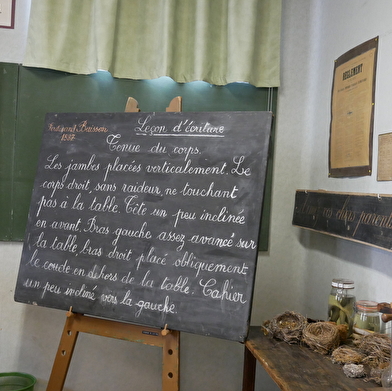 Ferdinand Buisson
1887
Leçon d'écriture
Tenue du corps.
Les jambes placées verticalement. Le
corps droit, sans raideur, ne touchant
pas à la table. Tête un peu inclinée
en avant. Bras gauche assez avancé sur
la table, bras droit placé obliquement
le coude en dehors de la table. Cahier
un peu incliné vers la gauche.
RÈGLEMENT